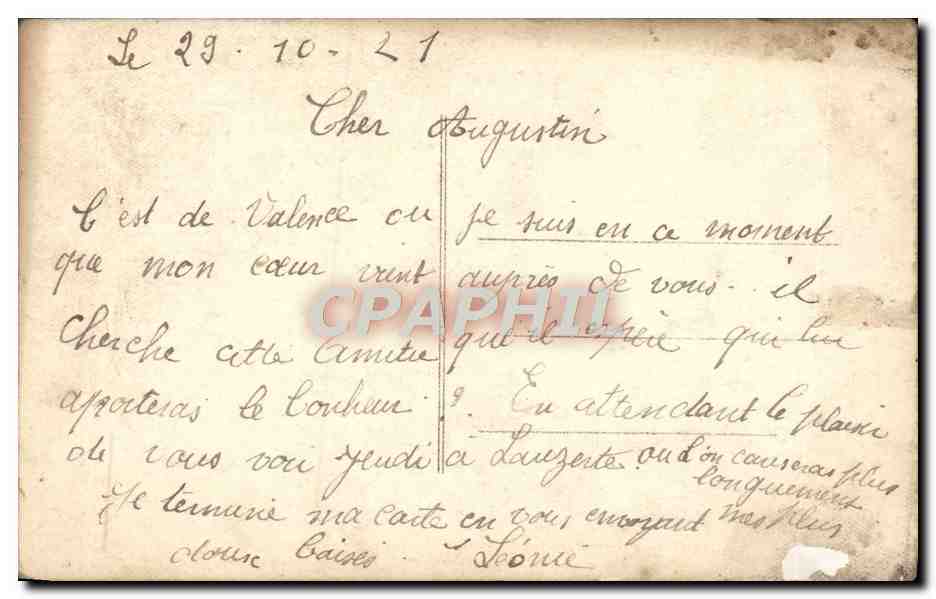 Le 29-10-21
Cher Augustin
C'est de Valence ou je suis en ce moment
que mon cœur vient auprès de vous. il
CPAPHIL
cherche cette amitie qu'il espère qui lui
aporteras le bonheur. En attendant le plaisir
de vous voir Jeudi a Lauzerte. ou l'on causeras plus
longuement
Je termine ma carte en vous envoyant mes plus
doux baisés. Léonie